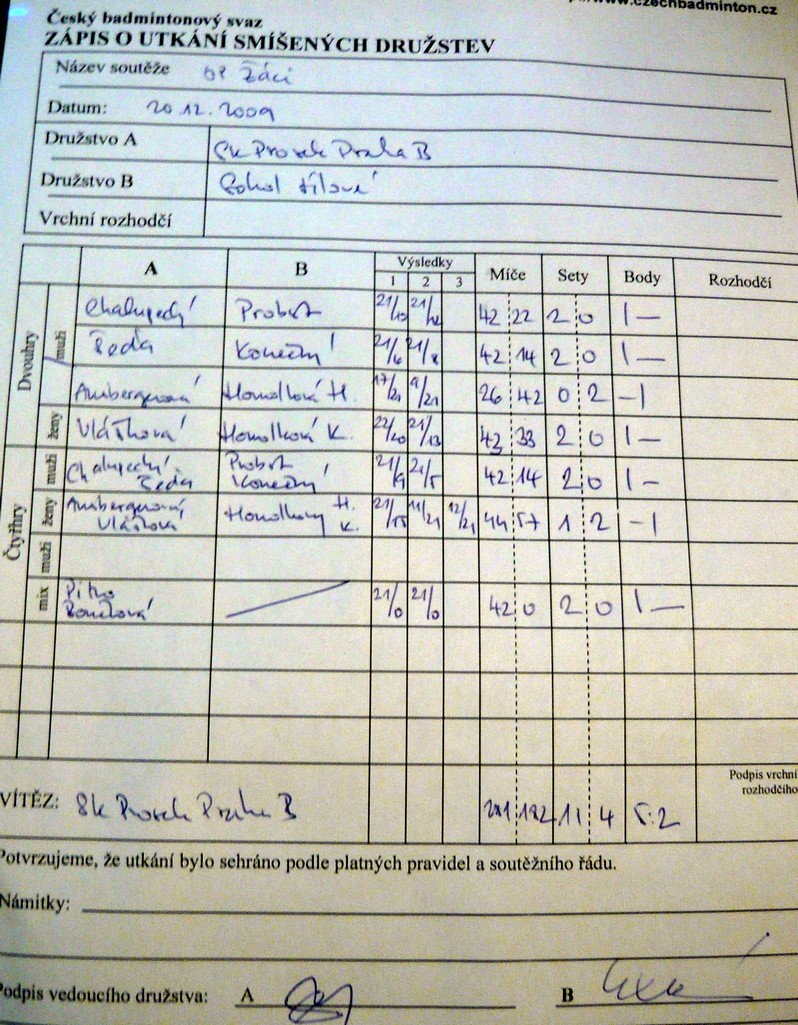 www.czechbadminton.cz
Český badmintonový svaz
ZÁPIS O UTKÁNÍ SMÍŠENÝCH DRUŽSTEV
Název soutěže OP žáci
Datum: 20.12.2009
Družstvo A SK Prosek Praha B
Družstvo B Sokol Jílové
Vrchní rozhodčí
A B Výsledky Míče Sety Body Rozhodčí
1 2 3
Dvouhry
muži
Chalupecký Probst 21/10 21/12 42 22 2 0 1 —
Řeďa Konečný 21/6 21/8 42 14 2 0 1 —
Ambergerová Homolková H. 17/21 9/21 26 42 0 2 – 1
ženy Vlášková Homolková K. 22/20 21/13 43 33 2 0 1 —
Čtyřhry
muži Chalupecký Probst 21/9 21/5 42 14 2 0 1 –
Řeďa Konečný
ženy Ambergerová H. 21/15 11/21 12/21 44 57 1 2 – 1
Vlášková Homolkovy K.
muži
mix Pitro 21/0 21/0 42 0 2 0 1 —
VÍTĚZ: SK Prosek Praha B 281 182 11 4 5:2
Podpis vrchní
rozhodčího
Potvrzujeme, že utkání bylo sehráno podle platných pravidel a soutěžního řádu.
Námitky:
Podpis vedoucího družstva: A B